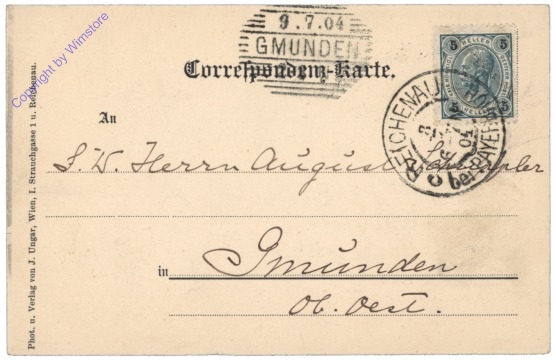 3.7.04
GMUNDEN
Correspondenz-Karte.
5 HELLER 5
5 HELLER 5
REICHENAU
bei PAYER
An
S. W. Herrn August
in Gmunden
Ob. Oest.
Phot. u. Verlag von J. Ungar, Wien, I. Strauchgasse 1 u. Reichenau.
Copyright by Wimstore